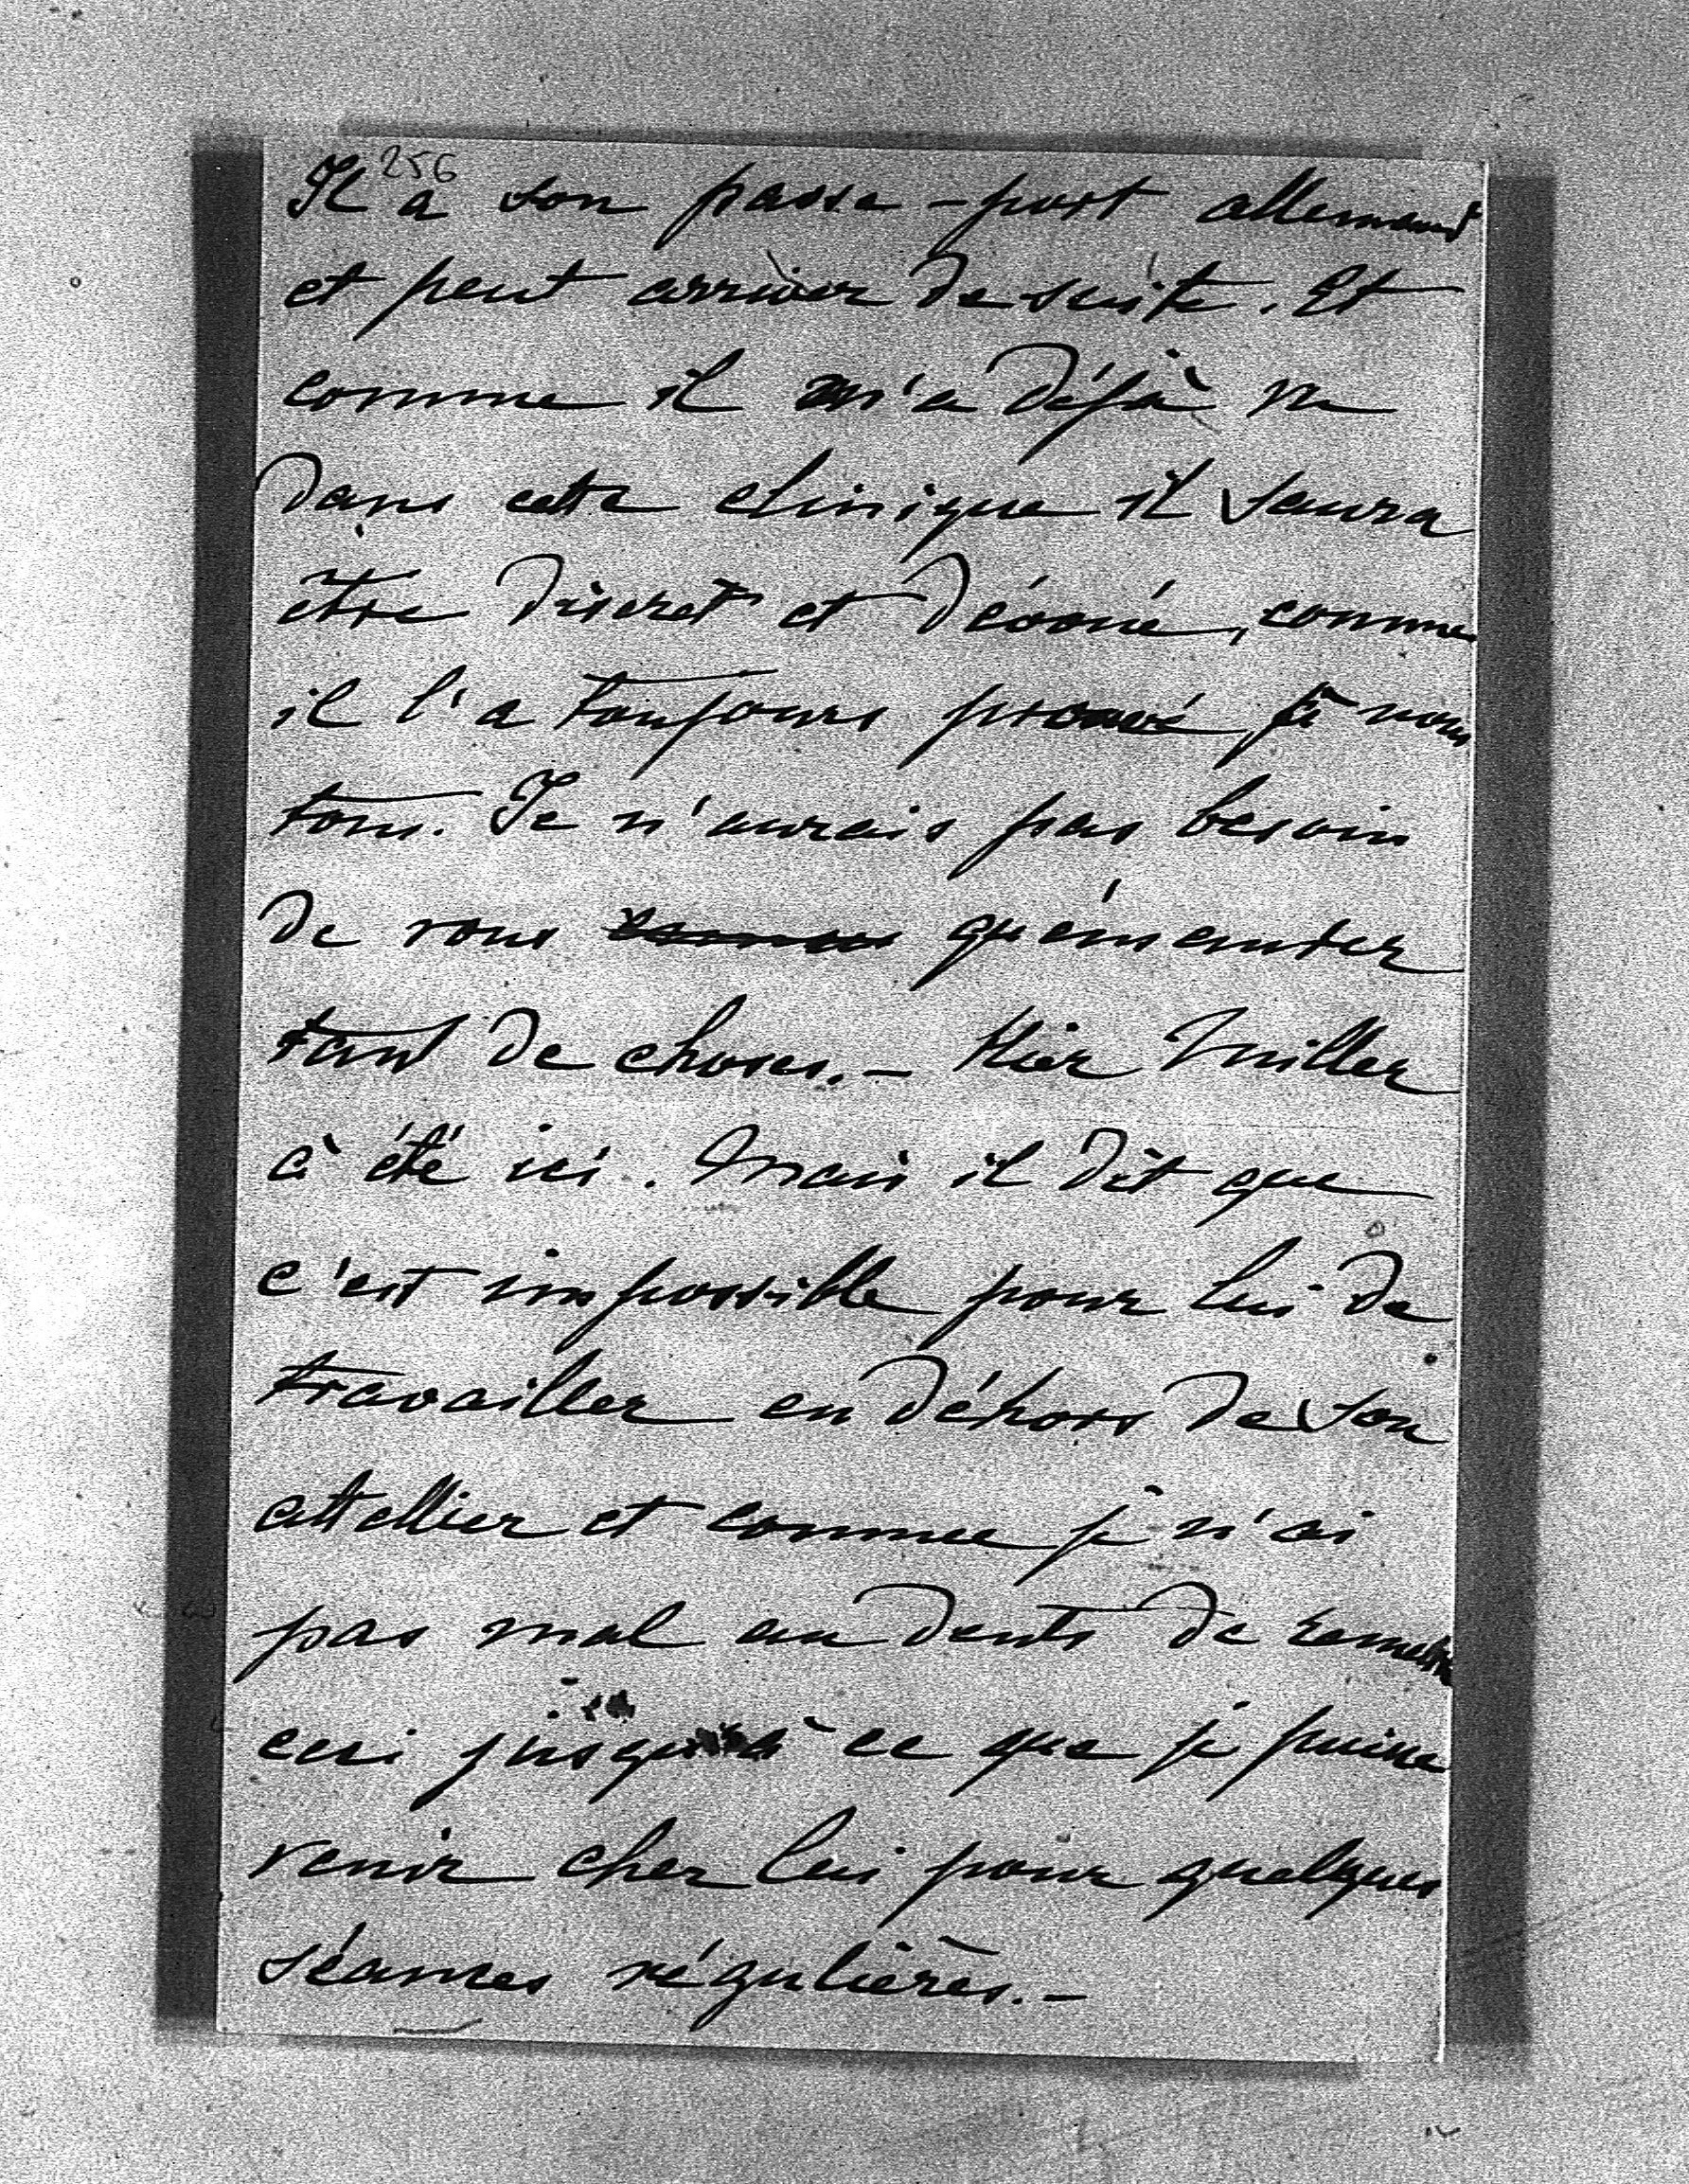 256
Il a son passe-port allemand
et peut arriver de suite. Et
comme il m'a déjà vu
dans cette clinique il saura
être discret et dévoué, comme
il l'a toujours prouvé à nous
tous. Je n'aurais pas besoin
de vous quémenter
tant de choses. – Hier Müller
à été ici. Mais il dit que
c'est impossible pour lui de
travailler en déhors de son
attellier et comme je n'ai
pas mal au dents de remettre
ceci jusqu'à ce que je puisse
venir chez lui pour quelques
séances régulières. –